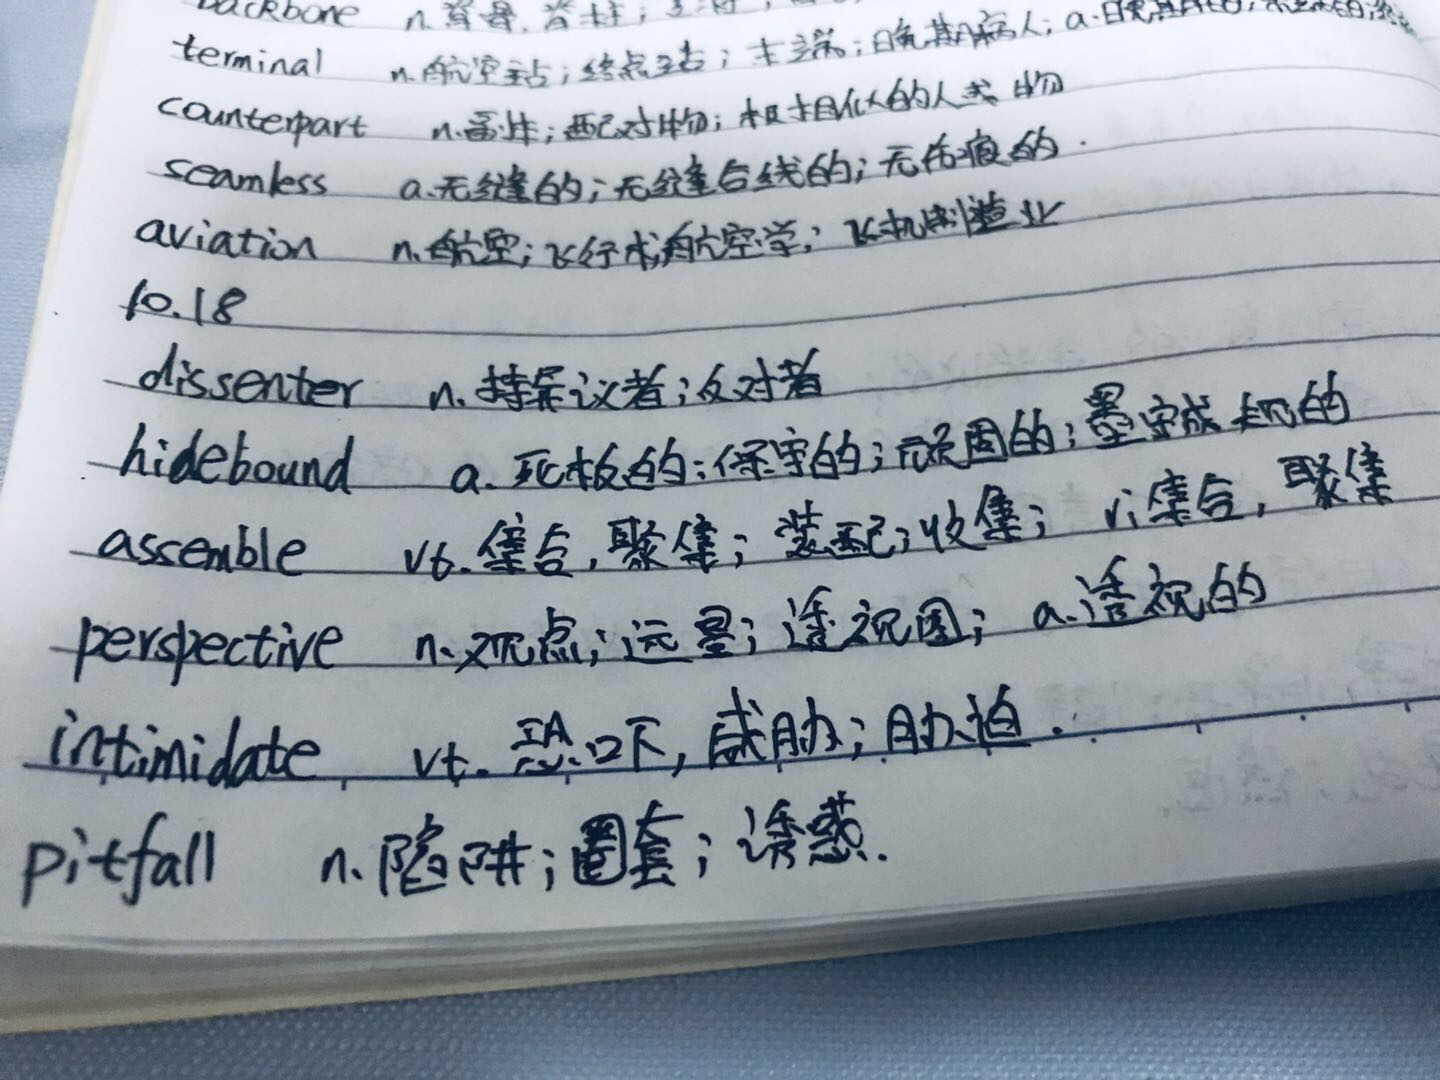 backbone n.脊骨,脊柱;
terminal n.航空站;终点站;末端;晚期病人;a.晚期的;
counterpart n.副件;配对物;极相似的人或物
seamless a.无缝的;无缝合线的;无伤痕的.
aviation n.航空;飞行术,航空学;飞机制造业
10.18
dissenter n.持异议者;反对者
hidebound a.死板的;保守的;顽固的;墨守成规的
assemble vt.集合,聚集;装配;收集;vi集合,聚集
perspective n.观点;远景;透视图;a.透视的
intimidate vt.恐吓,威胁;胁迫.
pitfall n.陷阱;圈套;诱惑.